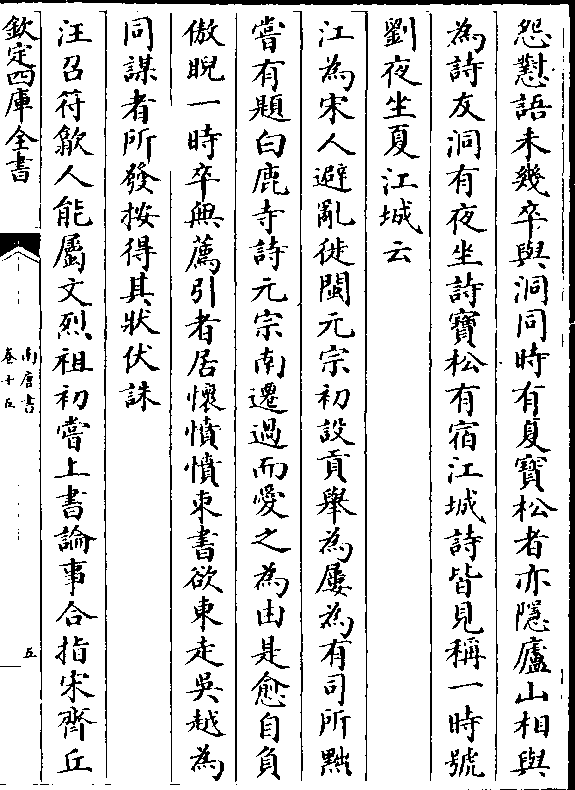 怨懟語未幾卒與洞同時有夏寶松者亦隱廬山相與
為詩友洞有夜坐詩寳松有宿江城詩皆見稱一時號
劉夜坐夏江城云
江為宋人避亂徙閩元宗初設貢舉為屢為有司所黜
嘗有題白鹿寺詩元宗南遷過而愛之為由是愈自負
傲睨一時卒無薦引者居懷憤憤束書欲東走吳越為
同謀者所發按得其狀伏誅
汪召符歙人能屬文烈祖初嘗上書論事合指宋齊丘
欽定四庫全書
南唐書
卷十五
五